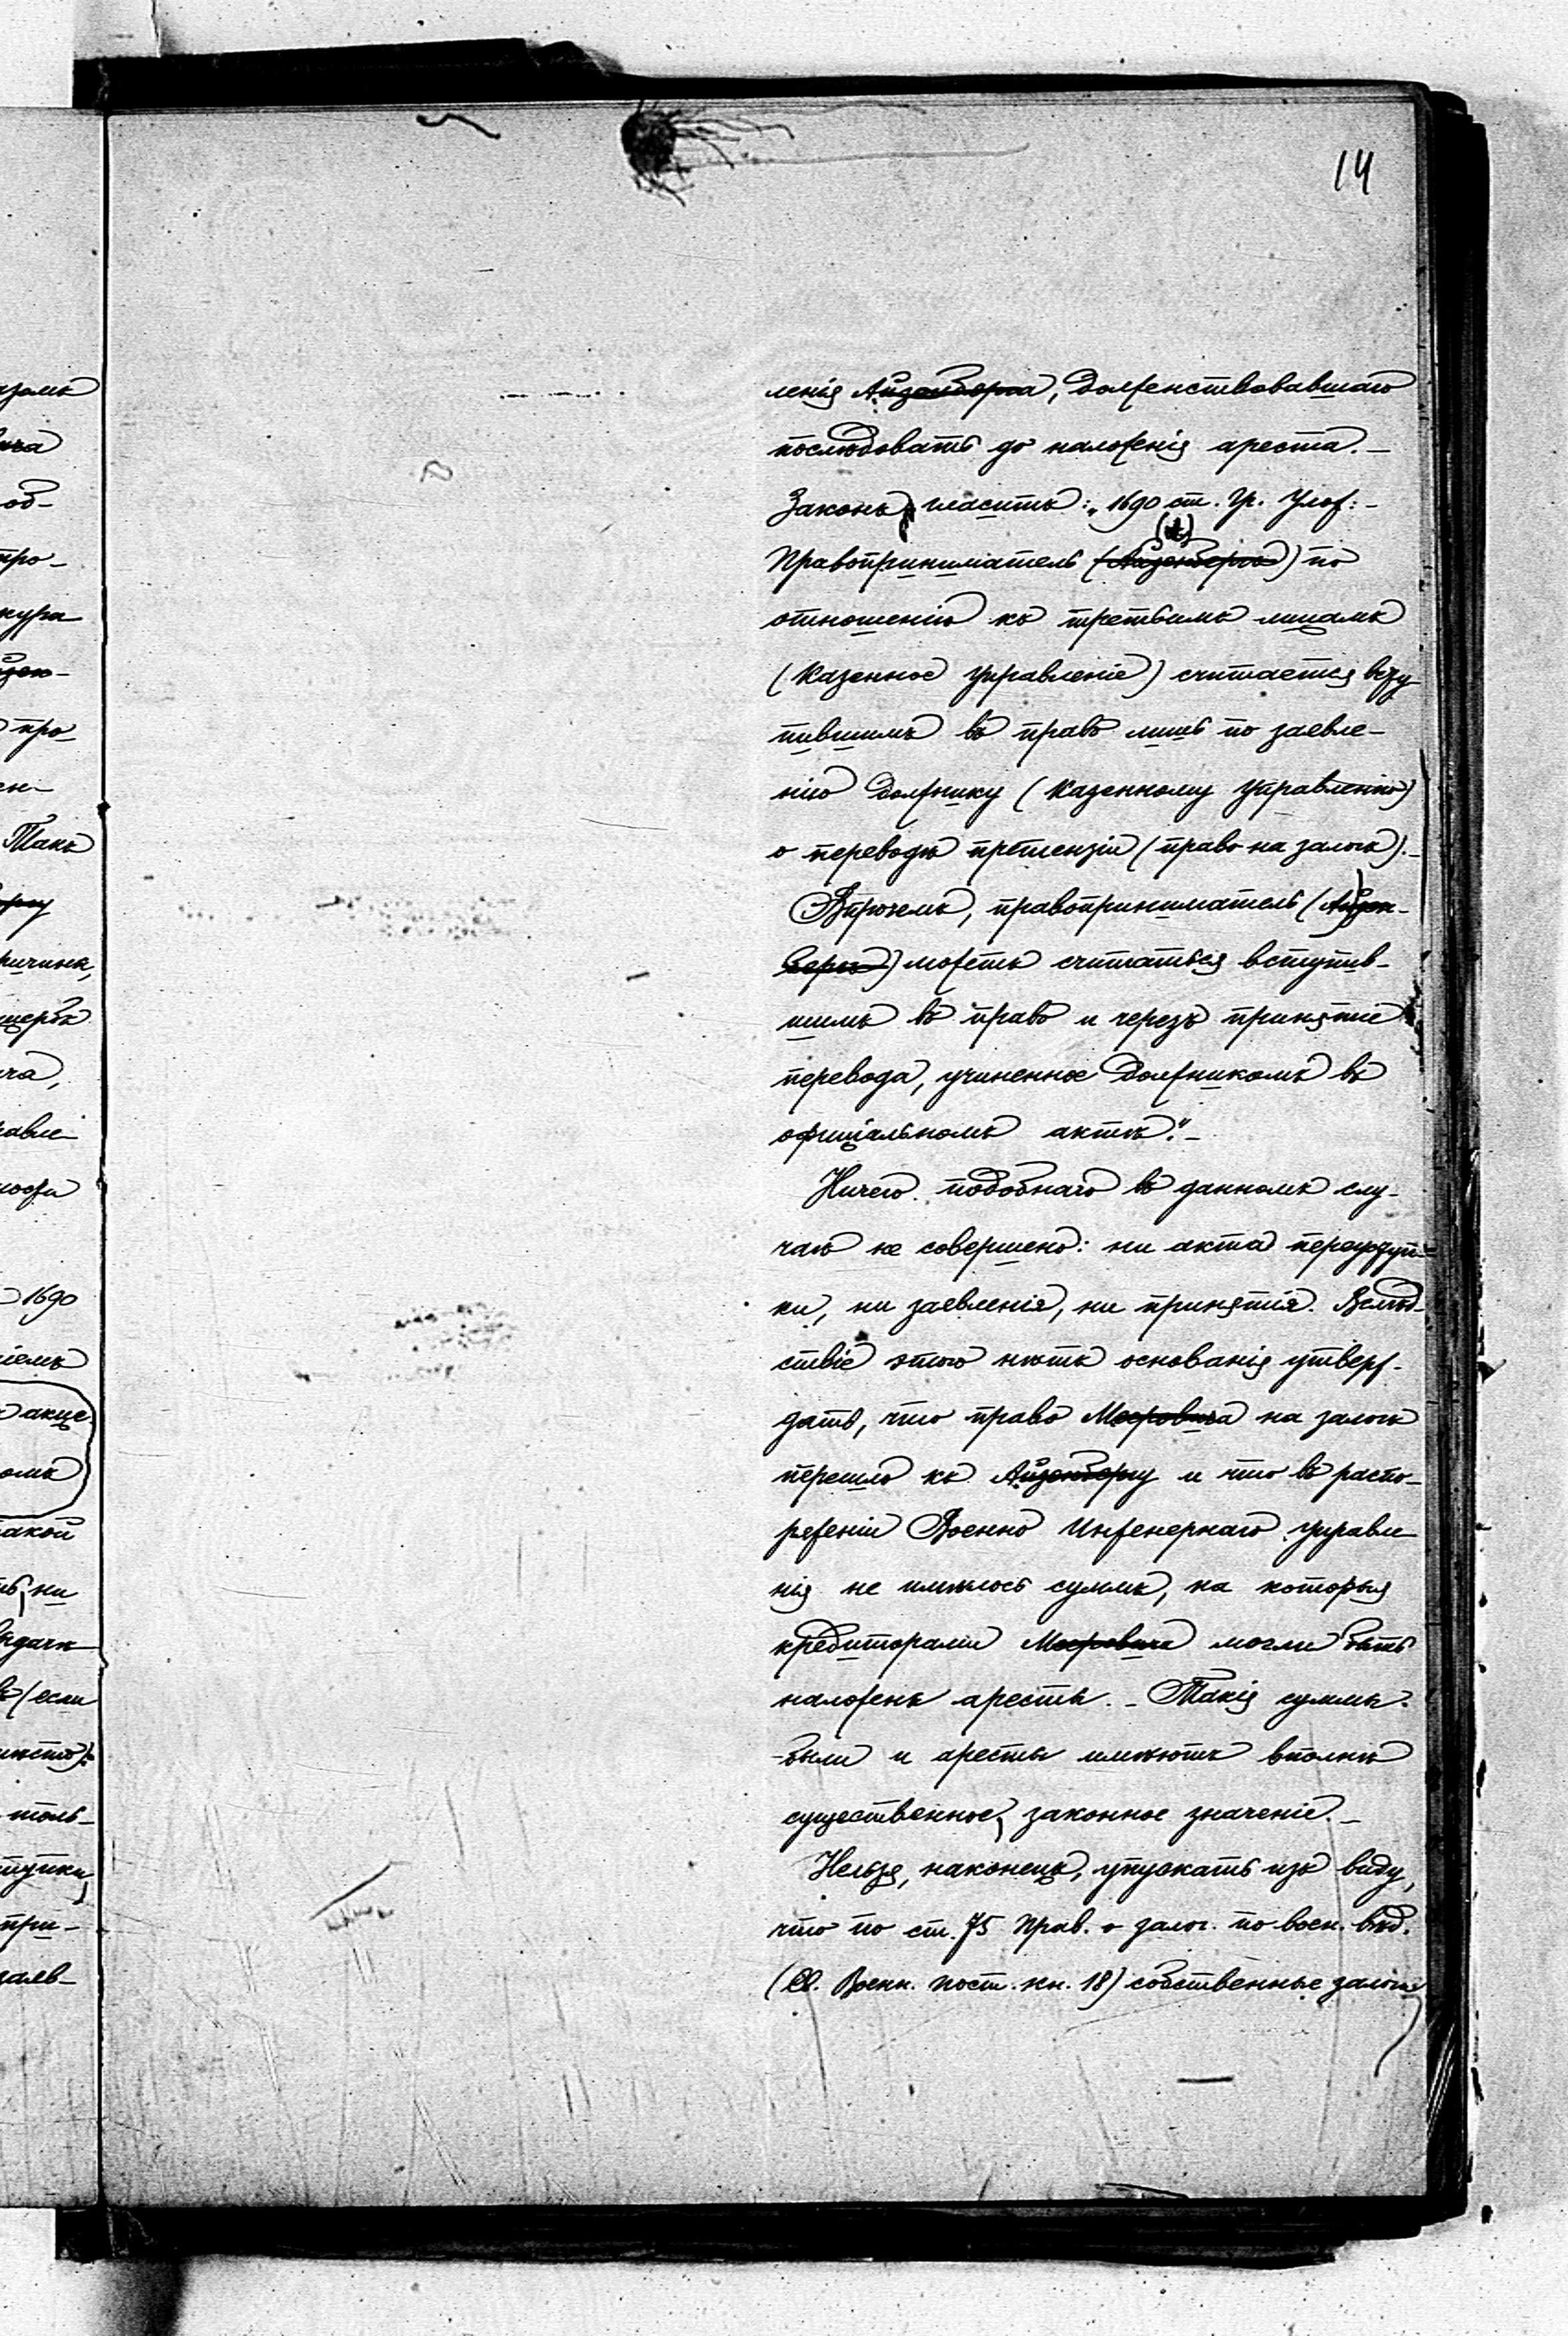 14
ленія Айзенберга, долженствовавшаго
послѣдовать до наложенія ареста. —
Законъ гласитъ: „1690 ст. Гр. Улож: —
Правоприниматель (Айзенбергъ) по
отношенію къ третьимъ лицамъ
(Казенное Управленіе) считается всту
пившимъ въ право лишь по заевле-
нію должнику (Казенному Управленію)
о переводѣ претензіи (право на залогъ). —
Впрочемъ, правоприниматель (Айзен-
бергъ) можетъ считаться вступив-
шимъ въ право и черезъ принятіе
перевода, учиненное должникомъ въ
офиціальномъ актѣ.“ —
Ничего подобнаго въ данномъ слу-
чаѣ не совершено: ни акта переуступ-
ки, ни заевленія, ни принятія. Вслѣд-
ствіе этого нѣтъ основанія утверж-
дать, что право Мееровича на залогъ
перешло къ Айзенбергу и что въ распо-
реженіи Военно Инженернаго Управле-
нія не имѣлось суммъ, на которыя
кредиторами Мееровича могли быть
наложены аресты. — Такія суммы
были и аресты имѣютъ вполнѣ
существенное, законное значеніе. —
Нельзя, наконецъ, упускать изъ виду,
что по ст. 75 Прав. о залог. по воен. вѣд.
(Св. Военн. Пост. кн. 18) собственные залоги
азомъ
об-
про-
кура
про
ен-
Такъ
ричинѣ,
ущербъ
ча,
равле-
1690
ніемъ
акце-
омъ
такой
ни
(если
толь-
ступки,
при-
заев-